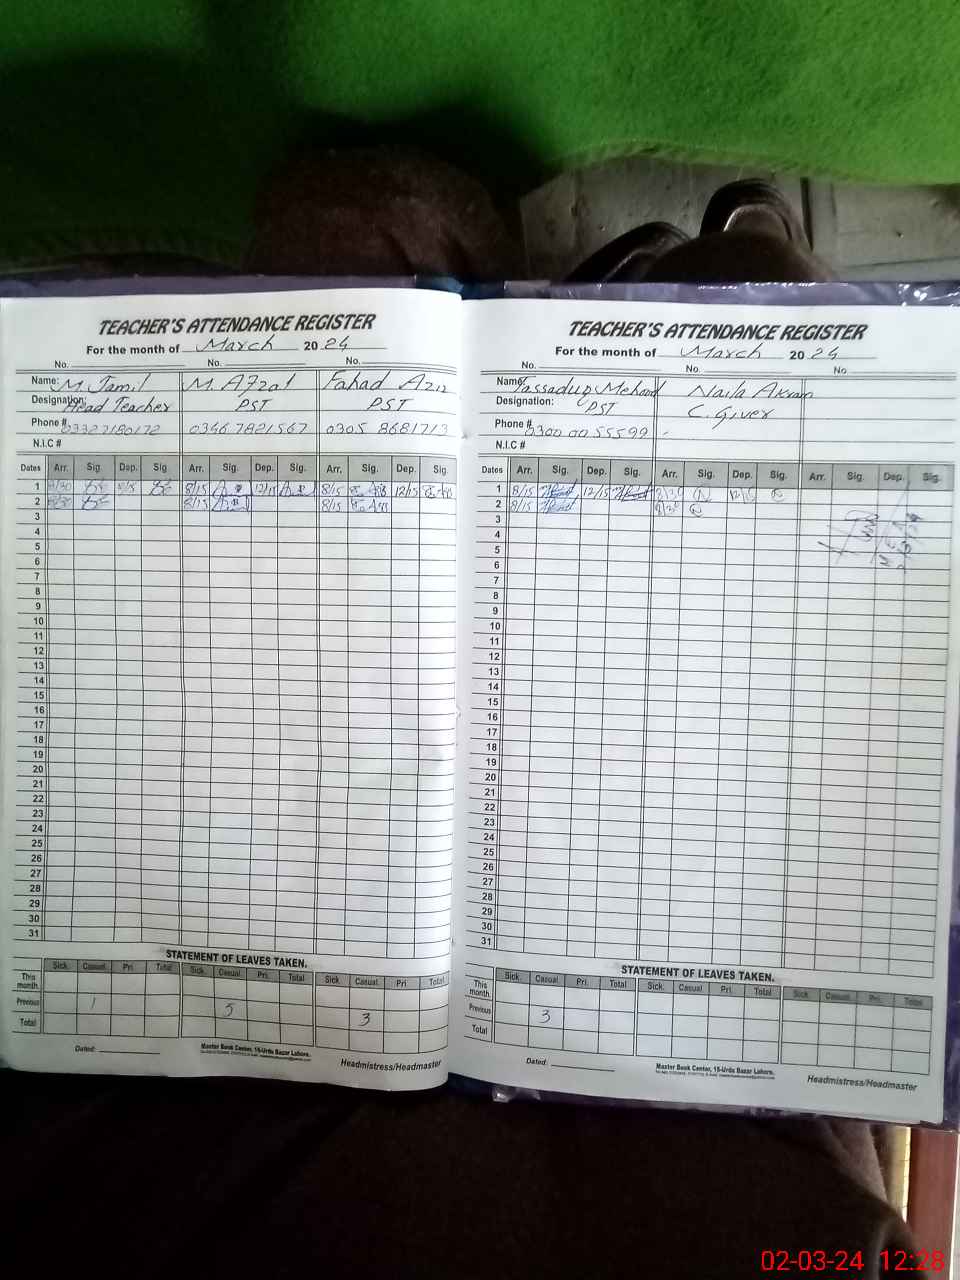 TEACHER'S ATTENDANCE REGISTER
For the month of March 20 24
No. No. No.
Name: M. Jamil M. Afzal Fahad Aziz
Designation: Head Teacher PST PST
Phone # 03327180172 0346 7821567 0305 8681713
N.I.C #
Dates Arr. Sig. Dep. Sig. Arr. Sig. Dep. Sig. Arr. Sig. Dep. Sig.
1 8/15 12/15 8/15 12/15
2 8/30 8/15 8/15
3
4
5
6
7
8
9
10
11
12
13
14
15
16
17
18
19
20
21
22
23
24
25
26
27
28
29
30
31
STATEMENT OF LEAVES TAKEN.
Sick. Casual. Pri. Total Sick. Casual. Pri. Total Sick. Casual. Pri. Total
This month.
Previous 1 5 3
Total
Dated:
Master Book Center, 15-Urdu Bazar Lahore.
Headmistress/Headmaster
TEACHER'S ATTENDANCE REGISTER
For the month of March 20 24
No. No. No
Name: Naila Akram
Designation: PST C. Giver
Phone # 0300 0055599
N.I.C #
Dates Arr. Sig. Dep. Sig. Arr. Sig. Dep. Sig. Arr. Sig. Dep. Sig.
1 8/15 12/15 8/30
2 8/15 8/30
3
4
5
6
7
8
9
10
11
12
13
14
15
16
17
18
19
20
21
22
23
24
25
26
27
28
29
30
31
STATEMENT OF LEAVES TAKEN.
Sick. Casual. Pri. Total Sick. Casual. Pri. Total Sick. Casual. Pri. Total
This month.
Previous 3
Total
Dated:
Master Book Center, 15-Urdu Bazar Lahore.
Headmistress/Headmaster
02-03-24 12:28